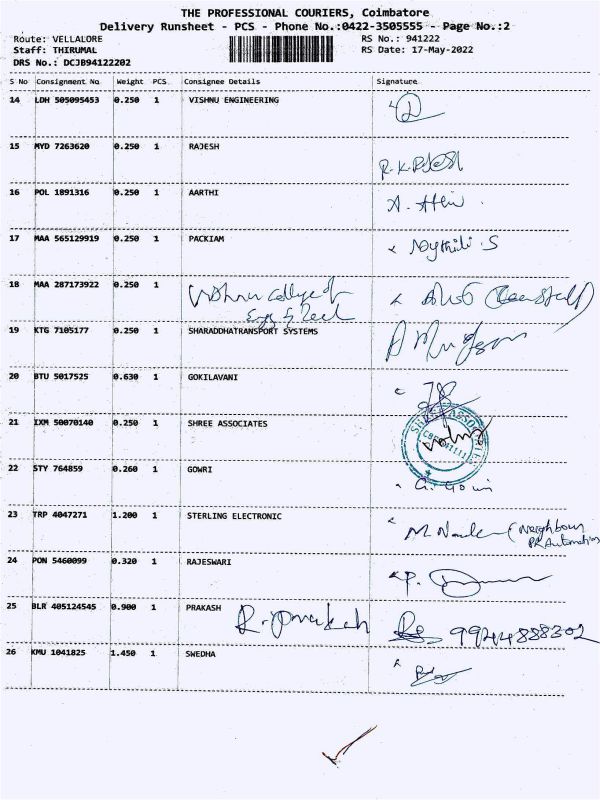 THE PROFESSIONAL COURIERS, Coimbatore
Delivery Runsheet - PCS - Phone No.:0422-3505555 - Page No.:2
Route: VELLALORE
Staff: THIRUMAL
DRS No.: DCJB94122202
RS No.: 941222
RS Date: 17-May-2022
S No Consignment No Weight PCS Consignee Details Signature
14 LDH 505095453 0.250 1 VISHNU ENGINEERING
15 MYD 7263620 0.250 1 RAJESH
16 POL 1891316 0.250 1 AARTHI A.
17 MAA 565129919 0.250 1 PACKIAM Mythili S
18 MAA 287173922 0.250 1 Vishnu college of
Engg & Tech
19 KTG 7105177 0.250 1 SHARADDHATRANSPORT SYSTEMS
20 BTU 5017525 0.630 1 GOKILAVANI
21 IXM 50070140 0.250 1 SHREE ASSOCIATES
22 STY 764859 0.260 1 GOWRI G. Gowri
23 TRP 4047271 1.200 1 STERLING ELECTRONIC M. (Neighbour
PR Automation)
24 PON 5460099 0.320 1 RAJESWARI P.
25 BLR 405124545 0.900 1 PRAKASH R. prakash 9944888302
26 KMU 1041825 1.450 1 SWEDHA